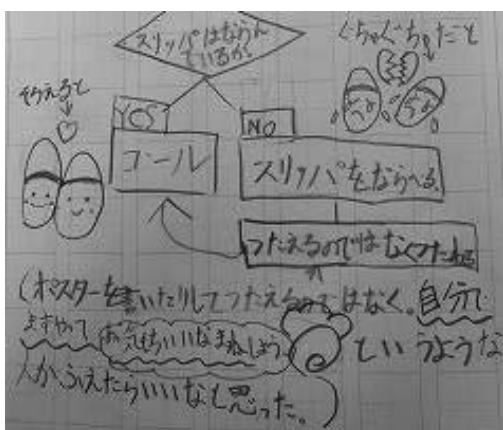 スリッパはならん
でいるか
ぐちゃぐちゃだと
そろえると
YES
NO
ゴール
スリッパをならべる
つたえるのではなくつたわる
(ポスターを書いたりしてつたえるのではなく。自分で
まずやって
お気もちいいなまねしよう。
というような
人がふえたらいいなと思った。)